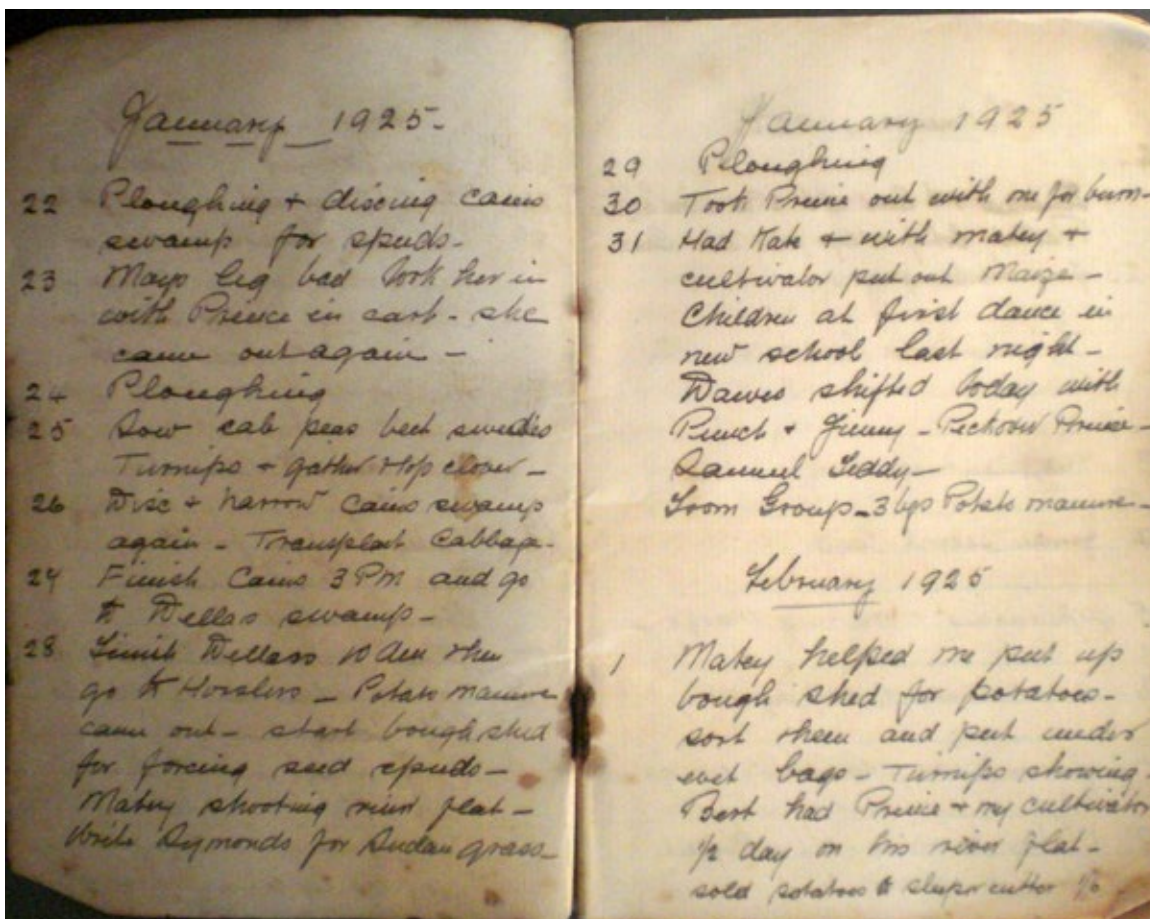 January 1925-
22 Ploughing + discing cains
swamp for spuds-
23 Mays leg bad took her in
with Prince in cart - she
came out again -
24 Ploughing
25 Sow cab peas beet swedes
Turnips + gather Hop clover -
26 Disc + harrow Cains swamp
again - Transplant Cabbage-
27 Finish Cains 3 PM and go
to Dellas swamp-
28 Finish Dellas 10 Am then
go to - Potato manure
came out - start bough shed
for forcing seed spuds -
Matey shooting river flat -
Write Symonds for Sudan grass-
January 1925
29 Ploughing
30 Took Prince out with me for burn-
31 Had Kate + with matey +
cultivator put out Maize -
Children at first dance in
new school last night -
Dawes shifted today with
Punch + Jinny - Prince -
Samuel Teddy -
From Group - 3 bgs Potato manure -
February 1925
1 Matey helped me put up
bough shed for potatoes-
sort them and put under
wet bags - Turnips showing-
Bert had Prince + my cultivator
1/2 day on his river flat -
sold potatoes to sleeper cutter